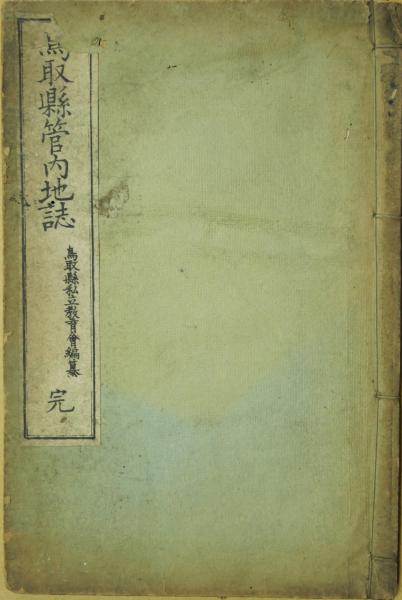 鳥取縣管内地誌
鳥取縣私立教育會編纂
完